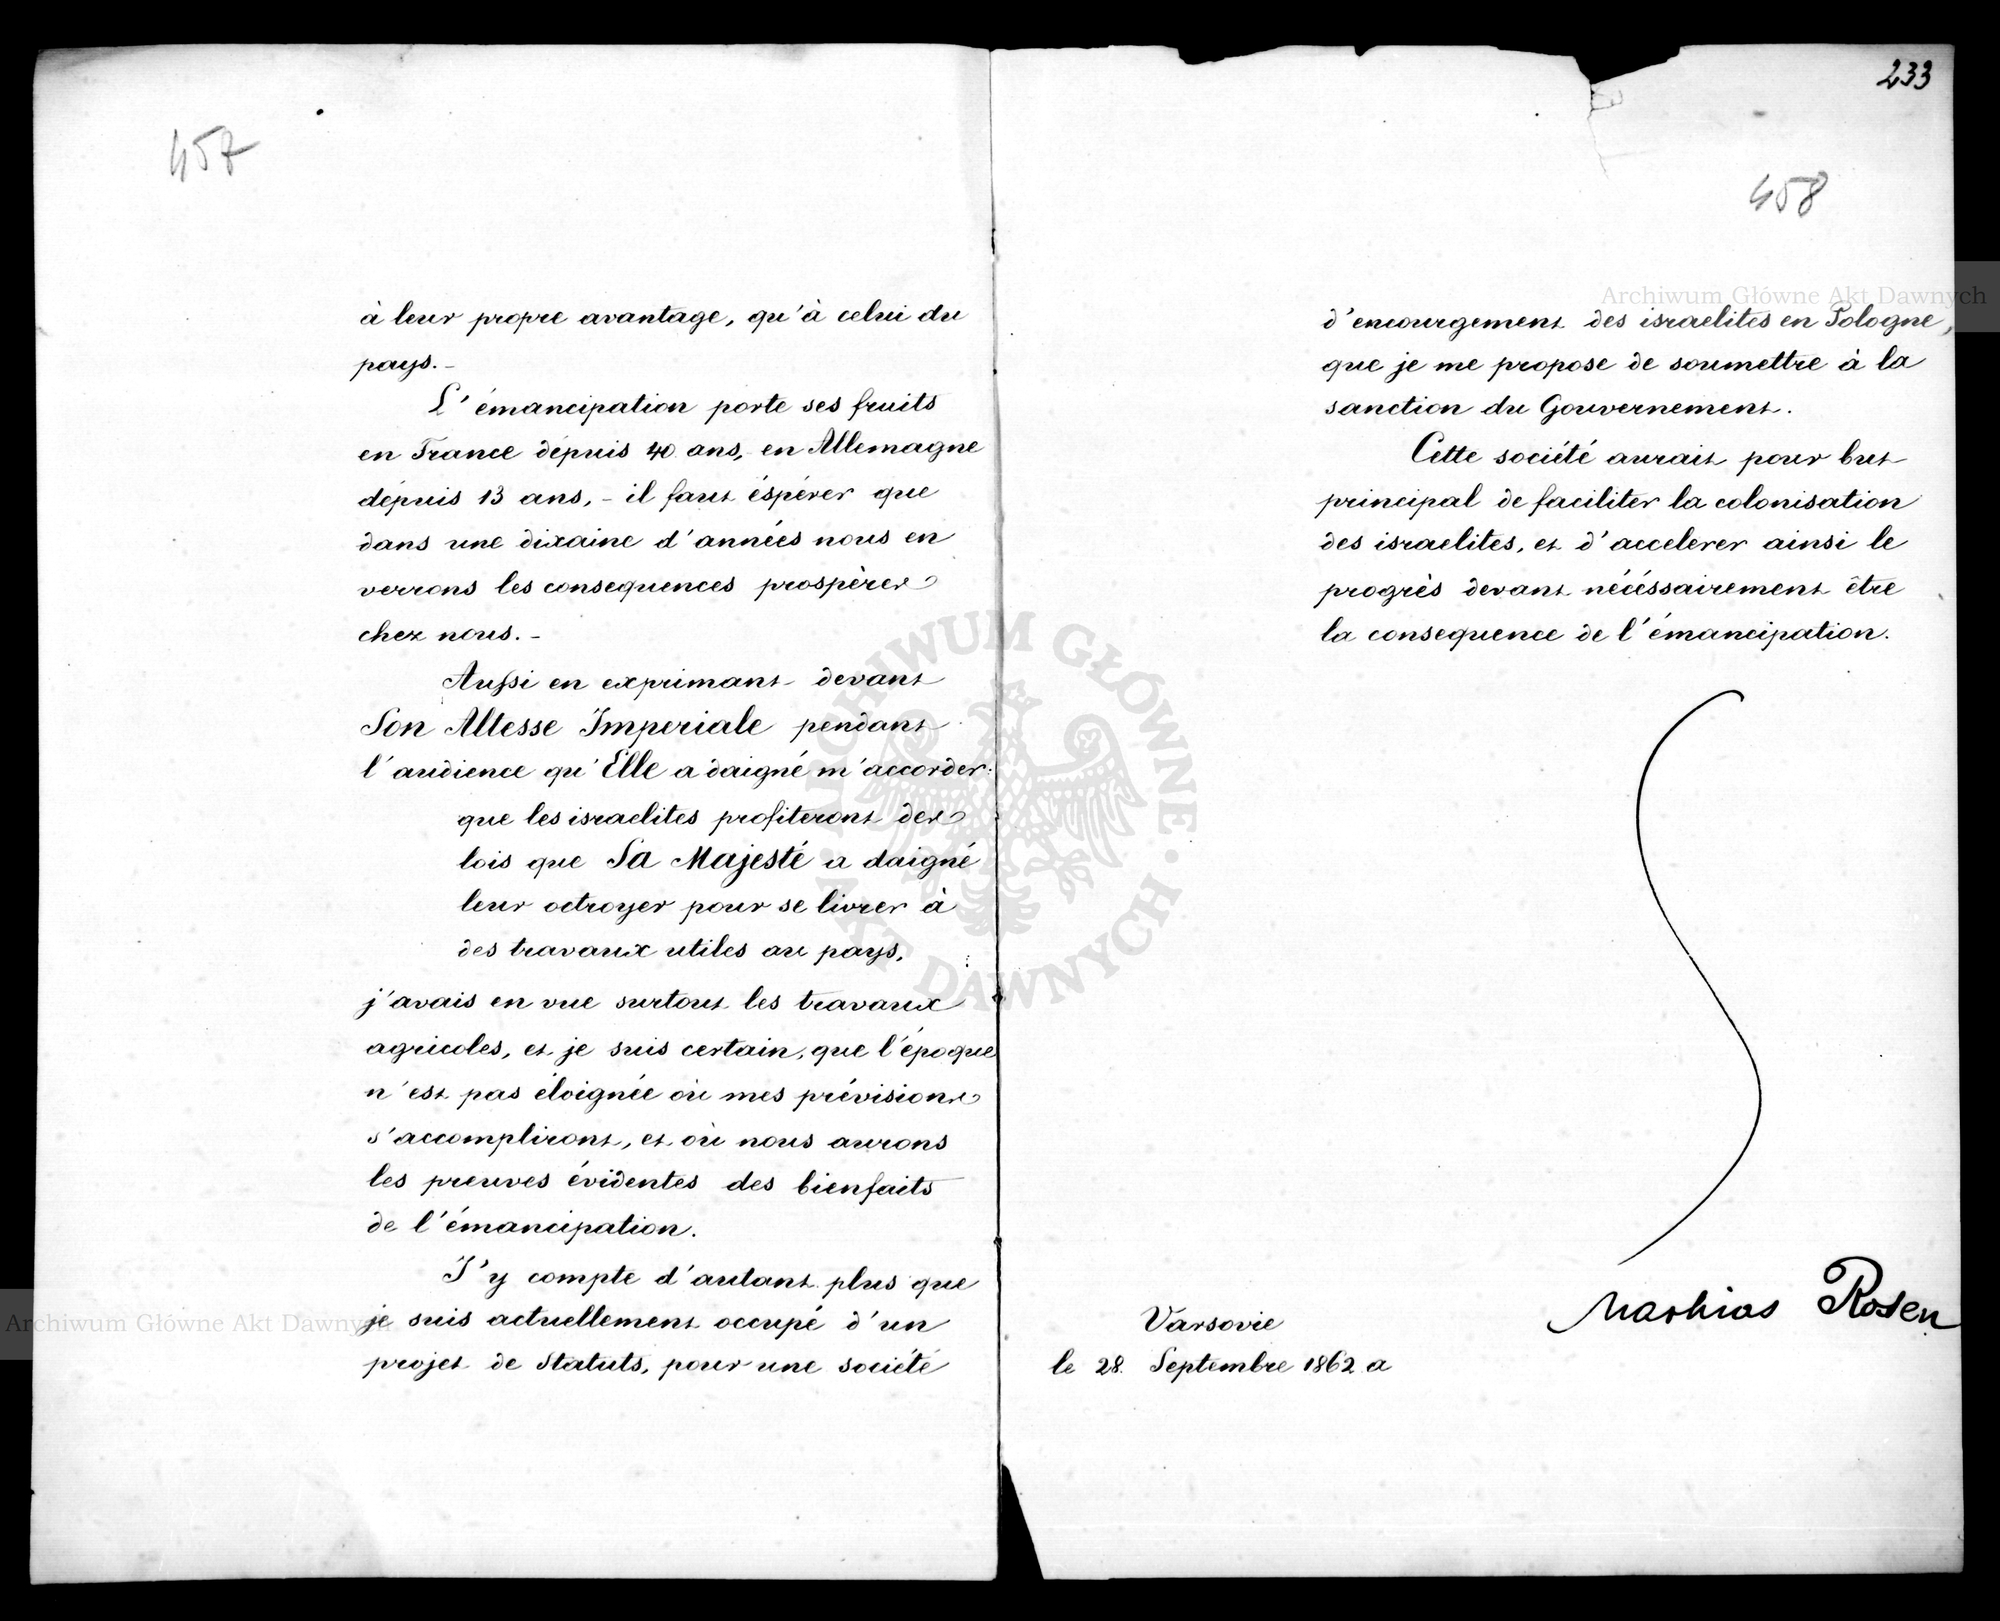 457
à leur propre avantage, qu'à celui du
pays.-
L'émancipation porte ses fruits
en France dépuis 40 ans, en Allemagne
dépuis 13 ans, - il faut éspérer que
dans une dixaine d'années nous en
verrons les consequences prospères
chez nous.-
Aussi en exprimant devant
Son Altesse Imperiale pendant
l'audience qu'Elle a daigné m'accorder:
que les israelites profiteront des
lois que Sa Majesté a daigné
leur octroyer pour se livrer à
des travaux utiles au pays,
j'avais en vue surtout les travaux
agricoles, et je suis certain, que l'époque
n'est pas éloignée où mes prévisions
s'accompliront, et où nous aurons
les preuves évidentes des bienfaits
de l'émancipation.
J'y compte d'autant plus que
je suis actuellement occupé d'un
projet de Statuts, pour une société
233
458
d'encourgement des israelites en Pologne,
que je me propose de soumettre à la
sanction du Gouvernement.
Cette société aurait pour but
principal de faciliter la colonisation
des israelites, et d'accelerer ainsi le
progrès devant nécéssairement être
la consequence de l'émancipation.
Mathias Rosen
Varsovie
le 28. Septembre 1862 a
Archiwum Główne Akt Dawnych
Archiwum Główne Akt Dawnych
ARCHIWUM GŁÓWNE AKT DAWNYCH